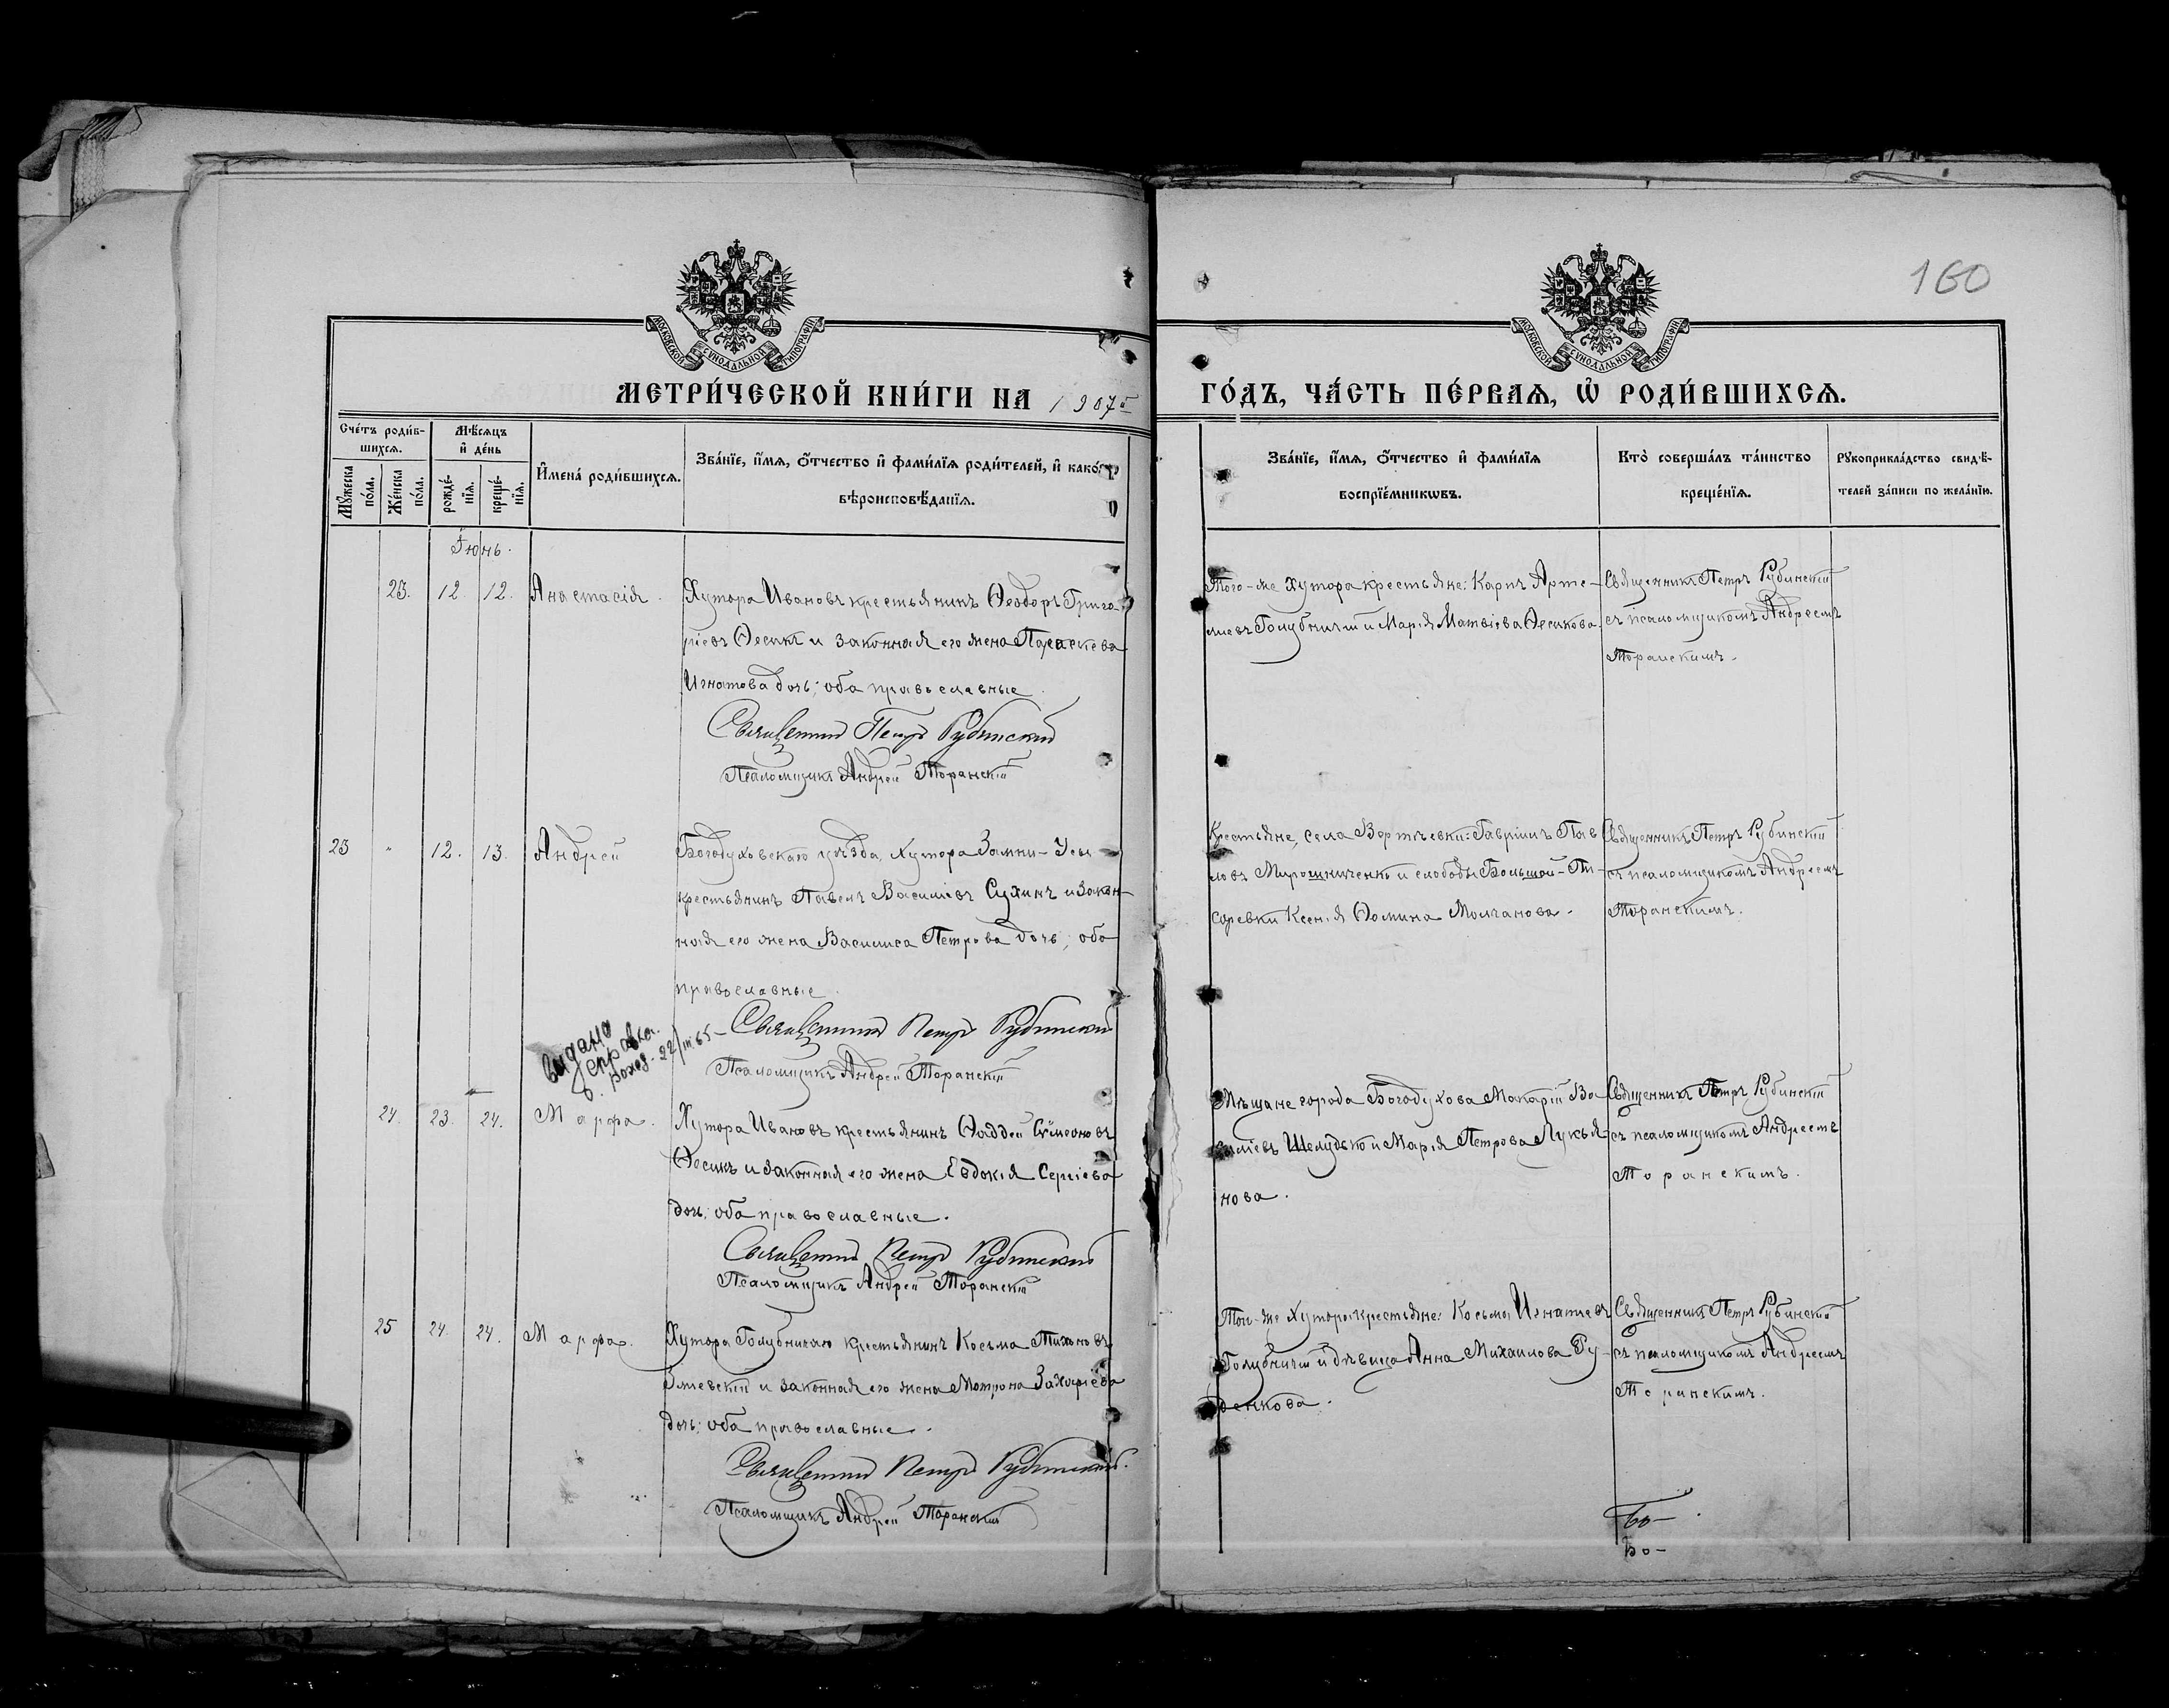 160
МОСКОВСКОЙ СѴНОДАЛЬНОЙ ТИПОГРАФІИ
МОСКОВСКОЙ СѴНОДАЛЬНОЙ ТИПОГРАФІИ
МЕТРИ́ЧЕСКОЙ КНИ́ГИ НА 1907й ГО́ДЪ, ЧА́СТЬ ПЕ́РВАѦ, Ѡ҆ РОДИ́ВШИХСѦ.
Сче́тъ роди́в-
шихсѧ.
Мꙋ́жеска по́ла.
Же́нска по́ла.
Мѣ́сѧцъ
и҆ де́нь
рожде́-
нїѧ.
креще́-
нїѧ.
И҆мена̀ роди́вшихсѧ.
Зва́нїе, и҆́мѧ, ѻ҆́тчество и҆ фами́лїѧ роди́телей, и҆ како́гѡ
вѣроисповѣ́данїѧ.
Зва́нїе, и҆́мѧ, ѻ҆́тчество и҆ фами́лїѧ
воспрїе́мникѡвъ.
Кто̀ соверша́лъ та́инство
креще́нїѧ.
Рꙋкоприкла́дство свидѣ́-
телей за́писи по жела́нїю.
Іюнь.
23. 12. 12. Анастасія.
Хутора Ивановъ крестьянинъ Ѳеодоръ Григо-
ріевъ Ѳесикъ и законная его жена Параскева
Игнатова дочь; оба православные.
Священникъ Петръ Рубинский
Псаломщикъ Андрей Торанскій
Того-же хутора крестьяне: Карпъ Арте-
міевъ Голубничій и Марія Матвіева Ѳесикова.
Священникъ Петръ Рубинскій
съ псаломщикомъ Андреемъ
Торанскимъ.
23 " 12. 13. Андрей
Богодуховскаго уѣзда, хутора
крестьянинъ Павелъ Василіевъ Сухинъ и закон-
ная его жена Василиса Петрова дочь; оба
православные.
Священникъ Петръ Рубинский
Псаломщикъ Андрей Торанскій
Крестьяне, села Вертѣевки: Гавріилъ Пав-
ловъ Мирошниченко и слободы Большой-Пи-
саревки Ксенія Ѳомина Молчанова.
Священникъ Петръ Рубинскій
съ псаломщикомъ Андреемъ
Торанскимъ.
видана
справка.
22/III 65
24. 23. 24. Марфа.
Хутора Ивановъ крестьянинъ Ѳаддей Сѵмеоновъ
Ѳесикъ и законная его жена Евдокія Сергіева
дочь; оба православные.
Священникъ Петръ Рубинский
Псаломщикъ Андрей Торанскій
Мѣщане города Богодухова Макарій Ва-
силіевъ Шелудько и Марія Петрова Лукья-
нова.
Священникъ Петръ Рубинскій
съ псаломщикомъ Андреемъ
Торанскимъ.
25 24. 24. Марфа.
Хутора Голубничаго крестьянинъ Косьма Тихоновъ
Зміевскій и законная его жена Матрона Захаріева
дочь; оба православные.
Священникъ Петръ Рубинский.
Псаломщикъ Андрей Торанскій
Того-же хутора крестьяне: Косьма Игнатіевъ
Голубничій и дѣвица Анна Михаилова Ру-
денкова.
Священникъ Петръ Рубинскій
съ псаломщикомъ Андреемъ
Торанскимъ.
Бо-